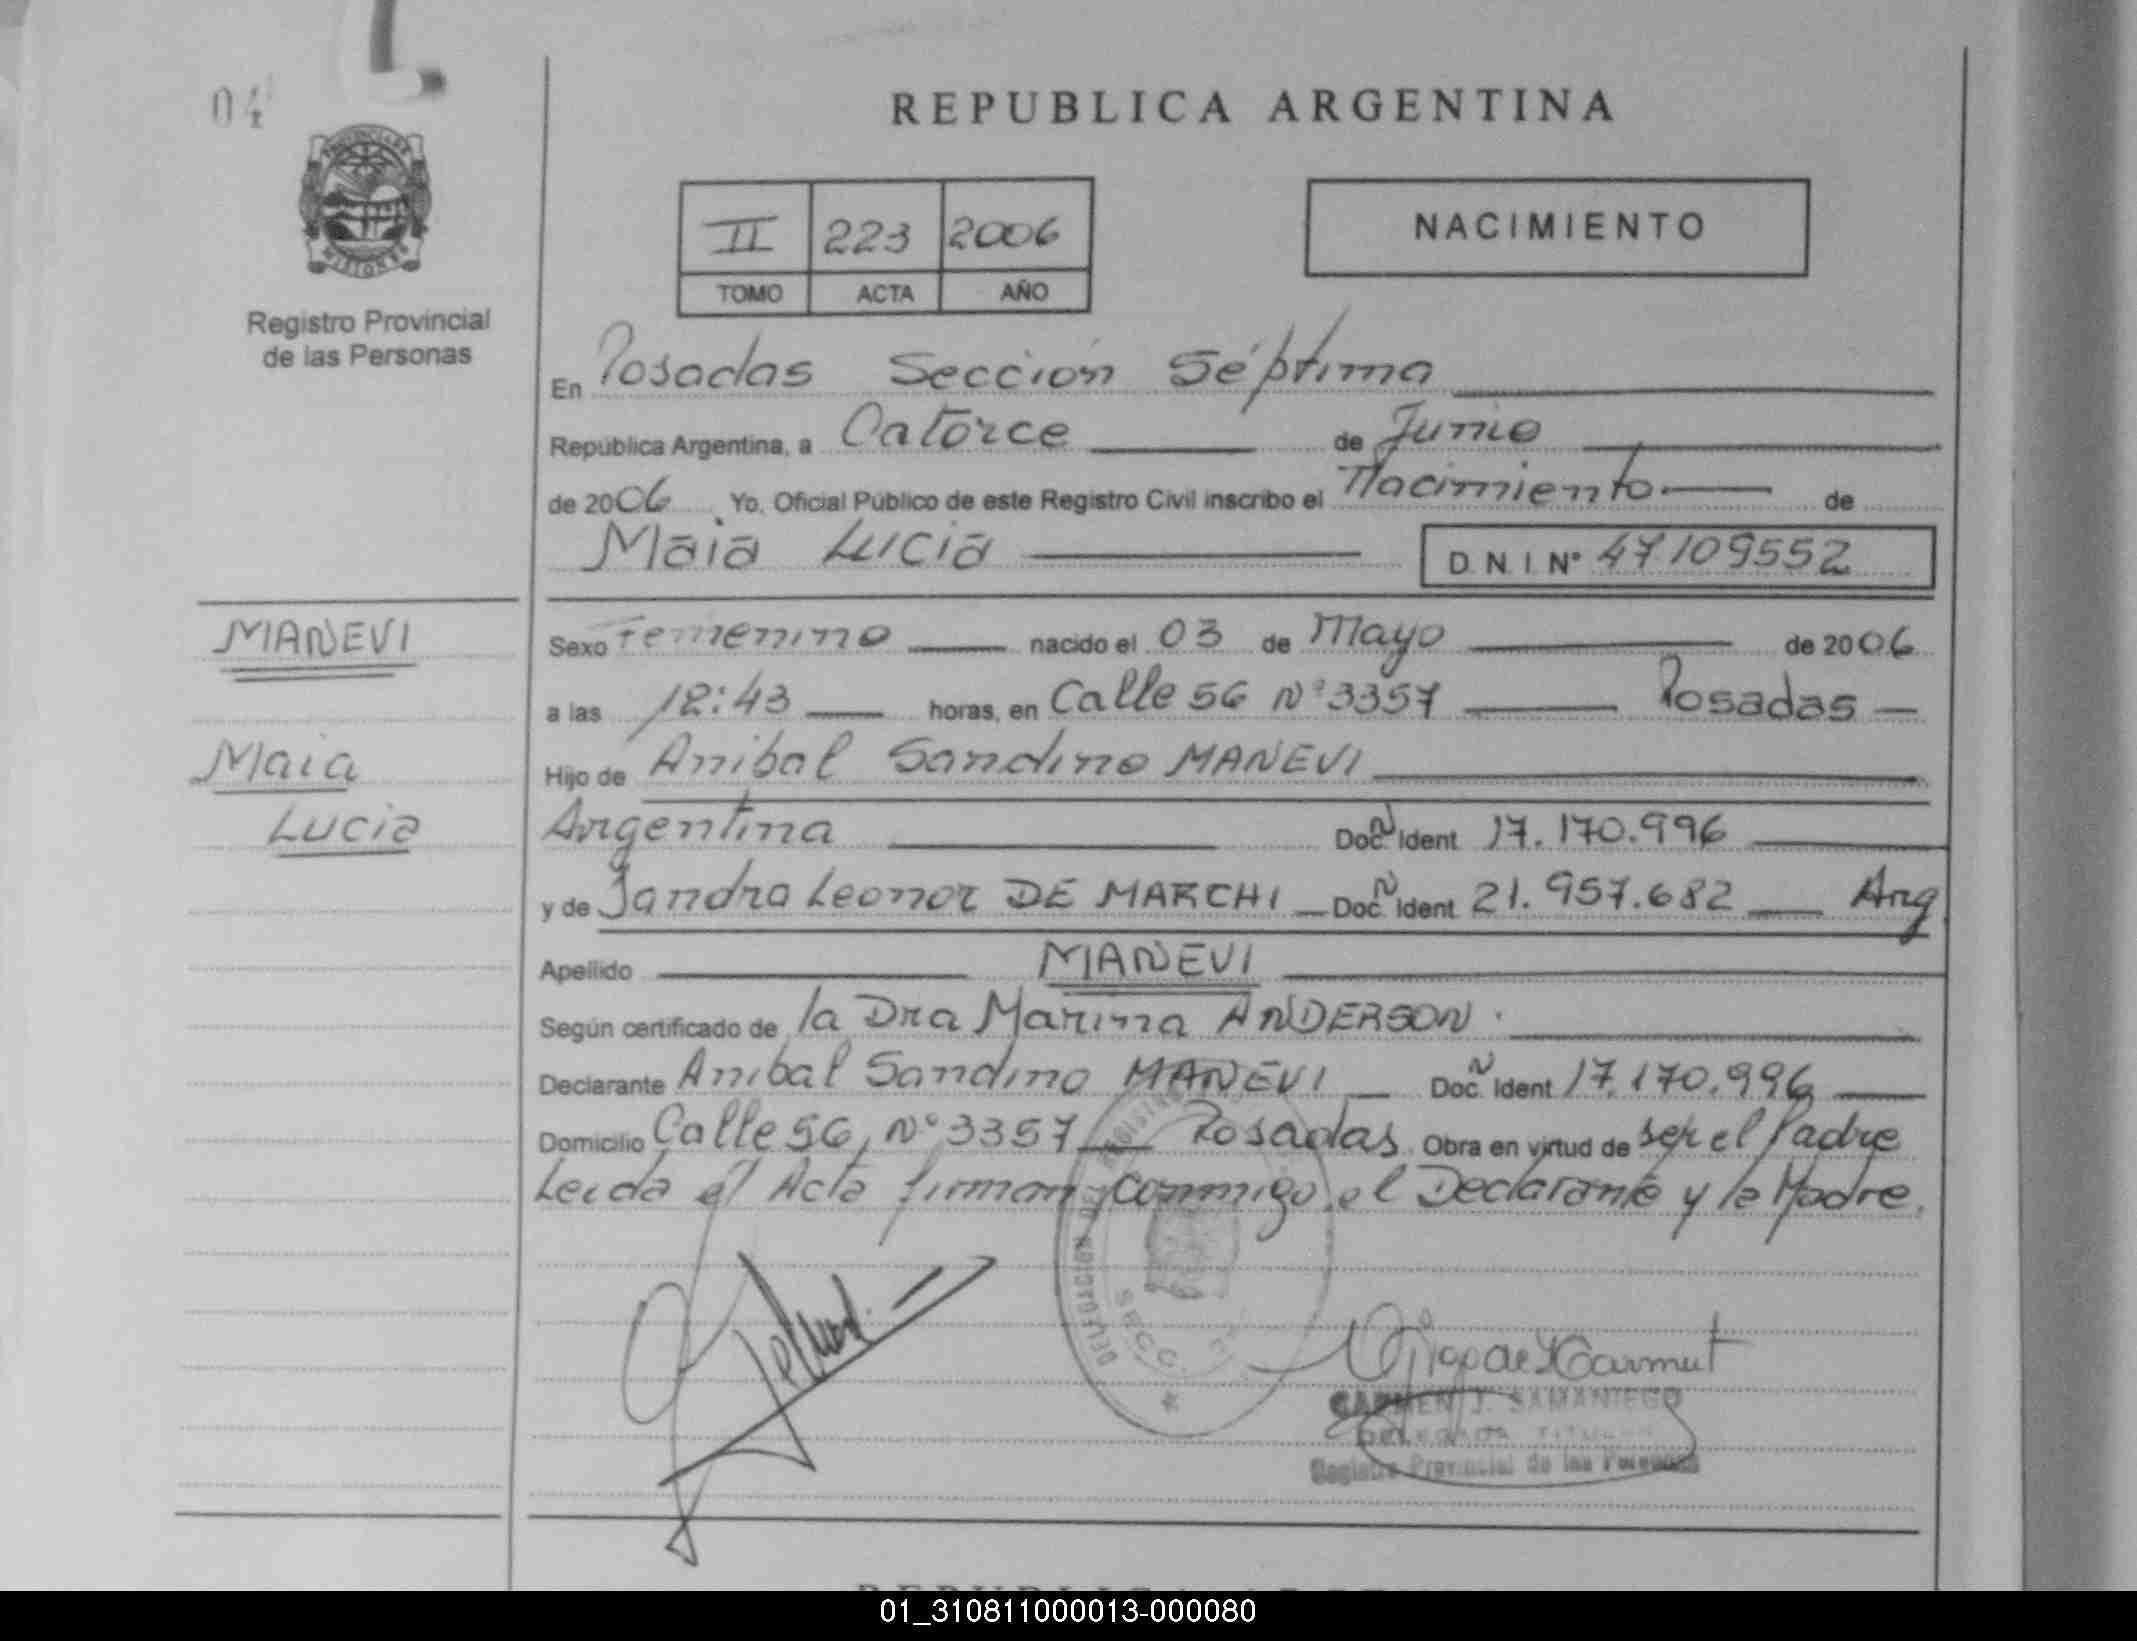 04
REPUBLICA ARGENTINA
PROVINCIA DE
MISIONES
II 223 2006
TOMO ACTA AÑO
NACIMIENTO
Registro Provincial
de las Personas
En Posadas Sección Séptima
República Argentina, a Catorce de Junio
de 2006 Yo, Oficial Público de este Registro Civil inscribo el Nacimiento de
Maia Lucia D.N.I. Nº 47109552
MANEVI
Maia
Lucia
Sexo Femenino nacido el 03 de Mayo de 2006
a las 12:43 horas, en Calle 56 Nº 3357 Posadas
Hijo de Anibal Sandino MANEVI
Argentina Doc. Ident 17.170.996
y de Sandra Leonor DE MARCHI Doc. Ident 21.957.682 Arg
Apellido MANEVI
Según certificado de la Dra Marina ANDERSON.
Declarante Anibal Sandino MANEVI Doc. Ident 17.170.996
Domicilio Calle 56, Nº 3357 Posadas Obra en virtud de ser el Padre
Leida el Acta firman conmigo el Declarante y la Madre.
DELEGACION DEL REGISTRO
SECC.
CARMEN J. SAMANIEGO
DELEGADA TITULAR
Registro Provincial de las Personas
01_310811000013-000080